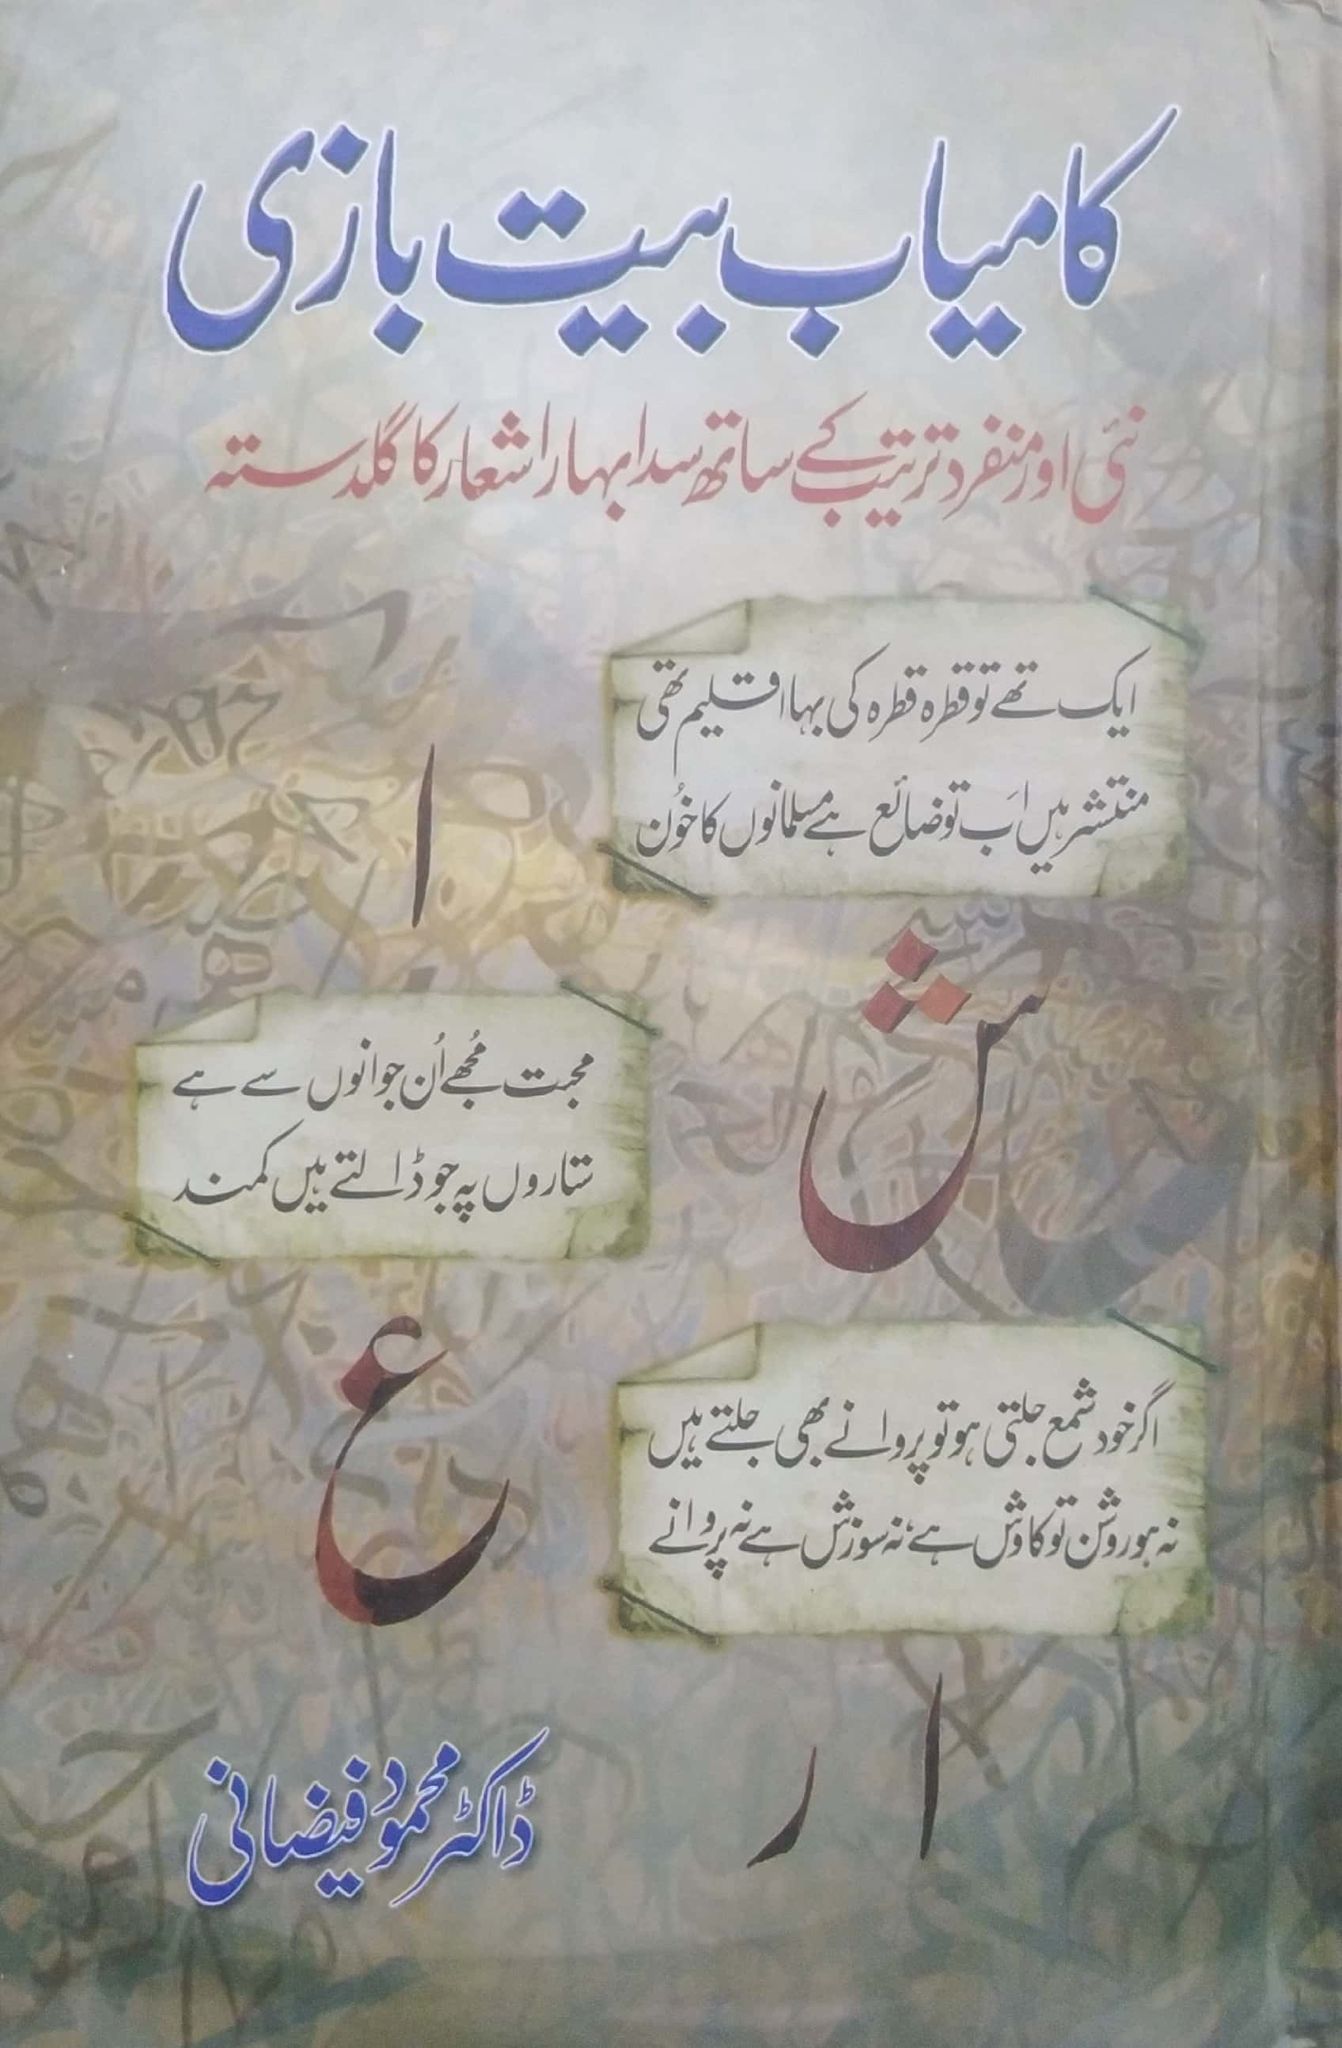 کامیاب بیت بازی
نئی اور منفرد ترتیب کے ساتھ سدا بہار اشعار کا گلدستہ
ایک تھے تو قطرہ قطرہ کی بہا اقلیم تھی
منتشر ہیں اَب تو ضائع ہے مسلمانوں کا خُون
ا
ش
محبت مُجھے اُن جوانوں سے ہے
ستاروں پہ جو ڈالتے ہیں کمند
ع
اگر خود شمع جلتی ہو تو پروانے بھی جلتے ہیں
نہ ہو روشن تو کاوش ہے، نہ سوزش ہے نہ پروانے
ا ر
ڈاکٹر محمود فیضانی